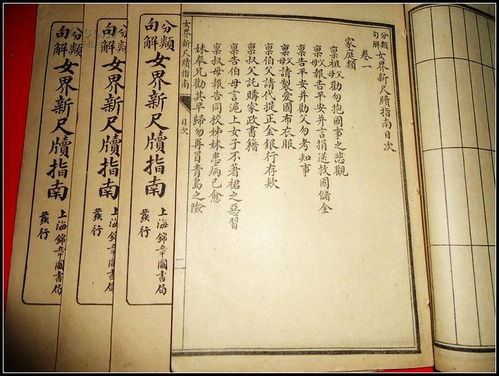 分類句解女界新尺牘指南目次
卷一
家庭類
稟祖父勸勿抱國事之悲觀
稟父報告平安并言捐送救國儲金
稟告平安并勸父勿考知事
稟母請製愛國布衣服
稟伯父請代提正金銀行存欵
稟叔父託購家政書籍
稟告伯母言滬上女子不著裙之惡習
稟叔母報告同校姊妹患病已愈
妹奉兄勸其早歸勿再冒青島之險
女界新尺牘指南 目次
分類句解女界新尺牘指南
上海錦章圖書局發行
分類句解女界新尺牘指南
上海錦章圖書局發行
分類句解女界新尺牘指南
上海錦章圖書局發行